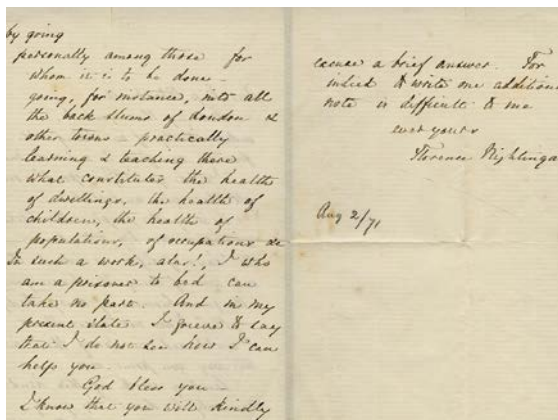 by going
personally among those for
whom it is to be done -
going, for instance, into all
the back slums of London &
other towns - practically
learning & teaching there
what constitutes the health
of dwellings, the health of
children, the health of
populations, of occupations &c
In such a work, alas!, I who
am a prisoner to bed can
take no part. And in my
present state I grieve to say
that I do not see how I can
help you.
God bless you -
I know that you will kindly
excuse a brief answer. For
indeed to write one additional
note is difficult to me
ever yours
Florence Nightinga
Aug 2/71